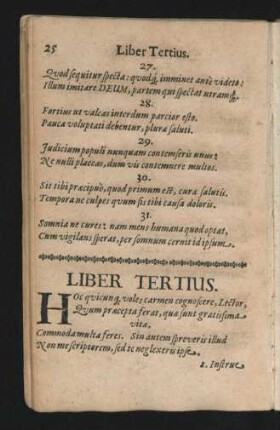 25 Liber Tertius.
27.
Quod sequitur specta: quodq́; imminet antè videto:
Illum imitare DEUM, partem qui spectat utramq́;.
28.
Fortius ut valeas interdum parcior esto.
Pauca voluptati debentur, plura saluti.
29.
Judicium populi nunquam contemseris unus:
Ne nulli placeas, dum vis contemnere multos.
30.
Sit tibi præcipuò, quod primum est, cura salutis.
Tempora ne culpes quum sis tibi causa doloris.
31.
Somnia ne cures: nam mens humana quod optat,
Cum vigilans sperat, per somnum cernit id ipsum.
LIBER TERTIUS.
HOc quicunq; voles carmen cognoscere, Lector,
Quum præcepta ferat, quæ sunt gratissima
vita,
Commoda multa feres. Sin autem spreveris illud
Non me scriptorem, sed te neglexeris ipse.
1. Instrue